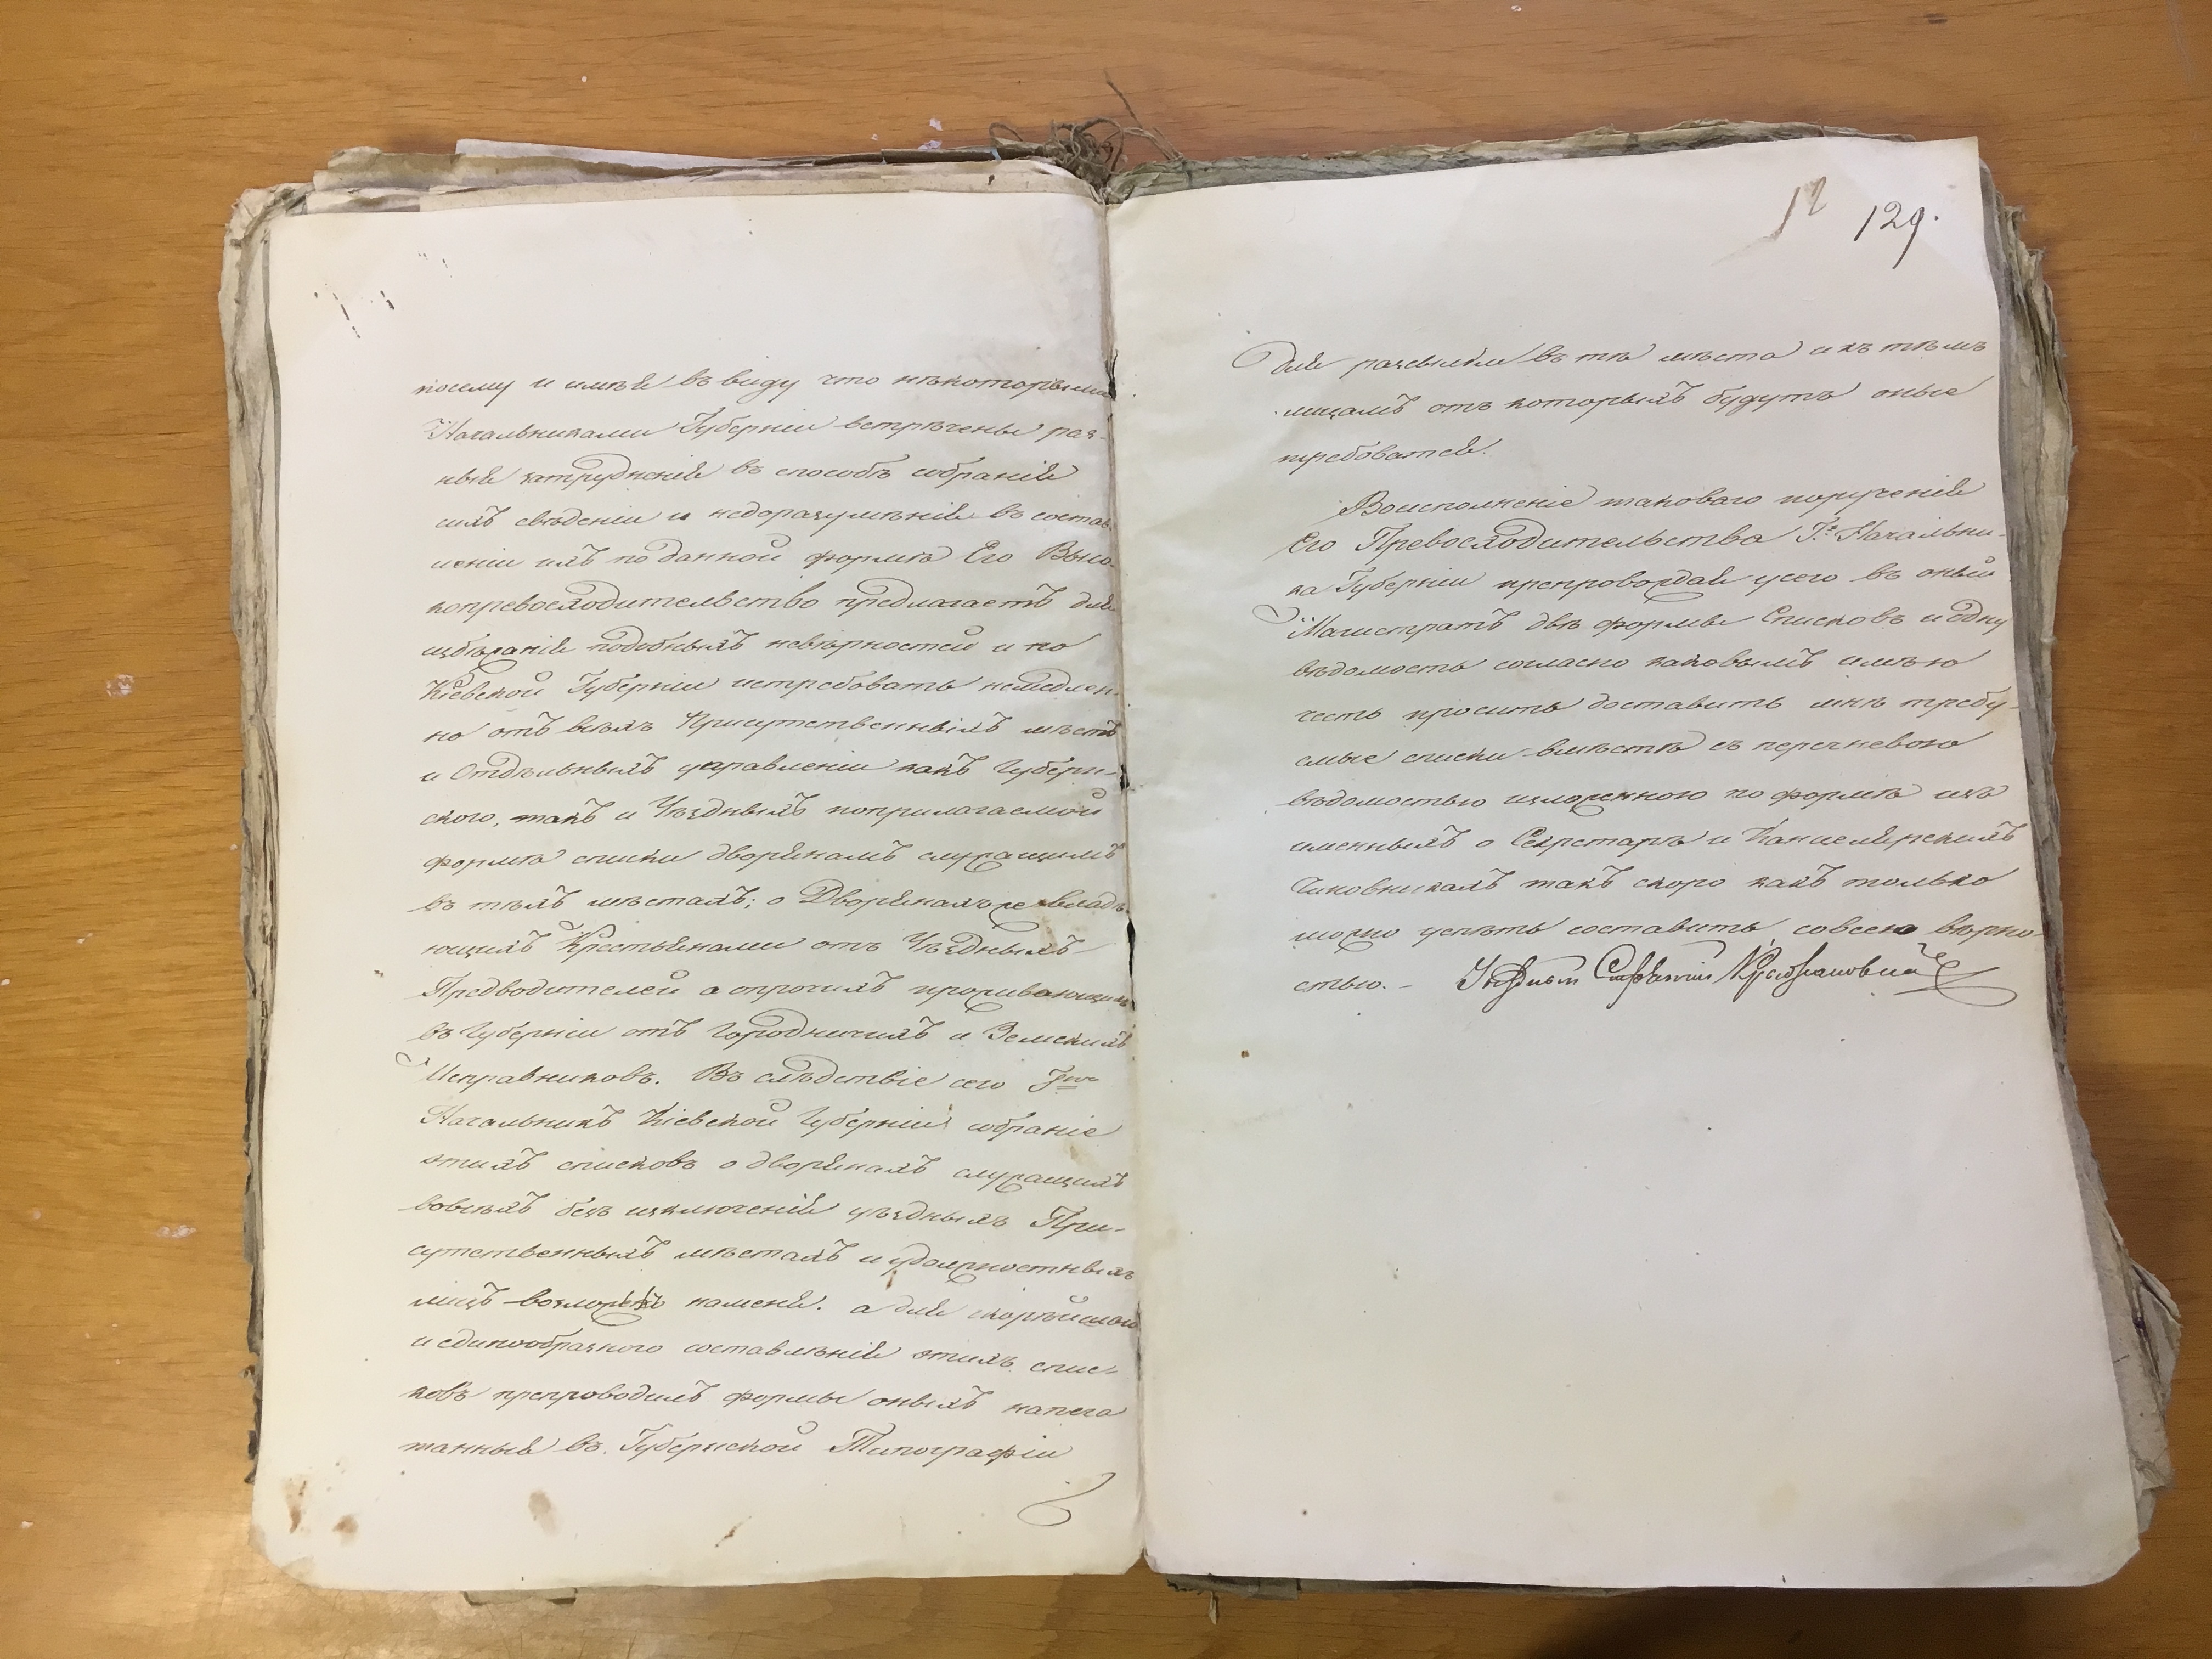 посему и имѣя въ виду что нѣкоторыми
Начальниками Губерніи встрѣчены раз-
ныя затрудненія въ способѣ собранія
сихъ свѣденіи и недоразумѣнія въ состав
леніи ихъ по данной формѣ Его Высо-
копревосходительство предлагаетъ для
избѣжанія подобныхъ невѣрностей и по
Кіевской Губерніи истребовать немедлен-
но отъ всѣхъ Присутственныхъ мѣстъ
и Отдѣльныхъ управленіи какъ Губерн-
ского, такъ и Уѣздныхъ поприлагаемой
формѣ списки дворянамъ служащимъ
въ тѣхъ мѣстахъ; о Дворянахъ же владѣ
ющихъ Крестьянами отъ Уѣздныхъ
Предводителей а опрочихъ проживающихъ
въ Губерніи отъ Городничихъ и Земскихъ
Исправниковъ. Въ слѣдствіе сего
Начальникъ Кіевской Губерніи собраніе
этихъ списковъ о дворянахъ служащихъ
вовсѣхъ безъ изключенія уѣздныхъ При-
сутственныхъ мѣстахъ и удолжностныхъ
лицъ возложилъ наменя. а для скорѣйшаго
и единообразного составлѣнія этихъ спис-
ковъ препроводилъ формы оныхъ напеча
танныя въ Губернской Типографіи
12 129.
для разсылки въ тѣ мѣста и къ тѣмъ
лицамъ отъ которыхъ будутъ оные
требоватся.
Воисполненіе таковаго порученія
Его Превосходительства Гна Начальни-
ка Губерніи препровождая усего въ оный
Магистратъ двѣ формы Списковъ и одну
вѣдомость согласно каковымъ имѣю
честь просить доставить мнѣ требу-
емые списки вмѣстѣ съ перечневою
вѣдомостью изложенною по формѣ изъ
именныхъ о Секретарѣ и Канцелярскихъ
Чиновникахъ такъ скоро какъ только
можно успѣть составить совсею вѣрно-
стью. - Уѣздный Стряпчій